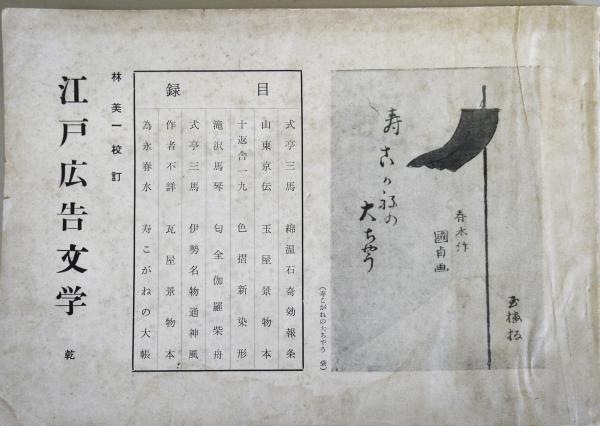 寿こがねの
大ちやう
春水作
國貞画
(寿こがねの大ちやう 袋)
目録
式亭三馬 綿温石奇効報条
山東京伝 玉屋景物本
十返舎一九 色摺新染形
滝沢馬琴 匂全伽羅柴舟
式亭三馬 伊勢名物通神風
作者不詳 瓦屋景物本
為永春水 寿こがねの大帳
林美一校訂
江戸広告文学 乾